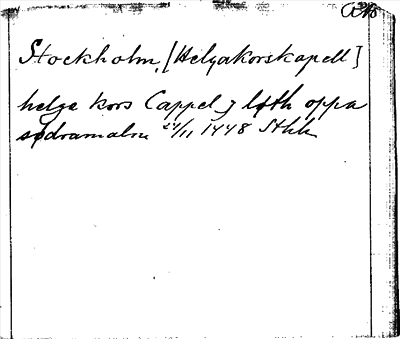 Stockholm, [Helgakorskapell]
helge kors Cappel j løth oppa
sødramalm 24/11 1448 Sthlm